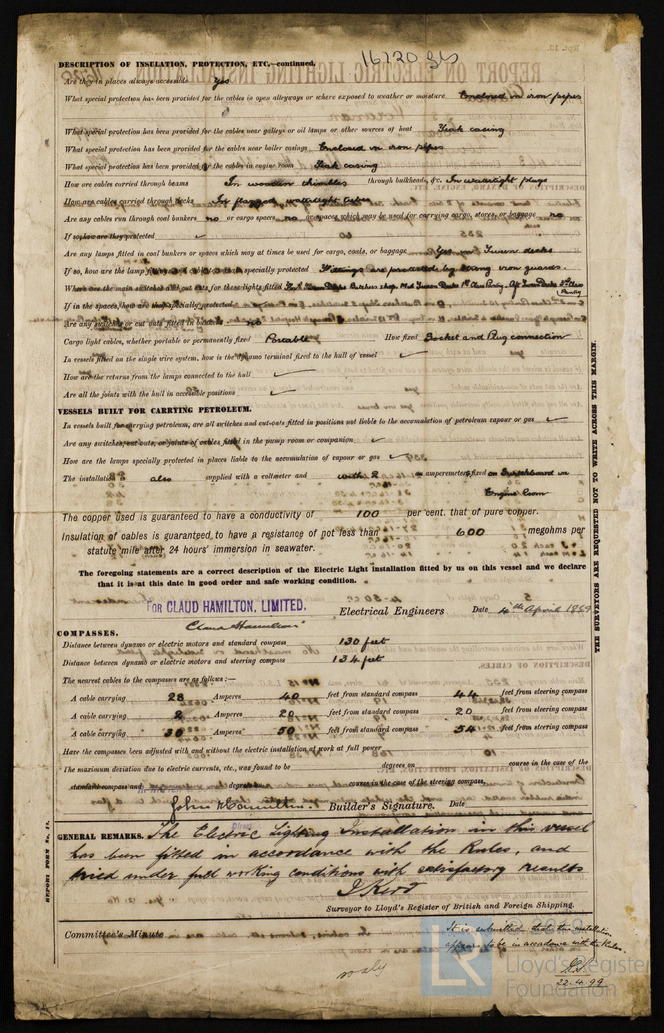 16720 Gls
DESCRIPTION OF INSULATION, PROTECTION, ETC.—continued.
Are they in places always accessible Yes
What special protection has been provided for the cables in open alleyways or where exposed to weather or moisture Enclosed in iron pipes
What special protection has been provided for the cables near galleys or oil lamps or other sources of heat Teak casing
What special protection has been provided for the cables near boiler casings Enclosed in iron pipes
What special protection has been provided for the cables in engine room Teak casing
How are cables carried through beams In wooden thimbles through bulkheads, &c. In watertight plugs
How are cables carried through decks In flanged watertight tubes
Are any cables run through coal bunkers no or cargo spaces no or spaces which may be used for carrying cargo, stores, or baggage no
If so, how are they protected ✓
Are any lamps fitted in coal bunkers or spaces which may at times be used for cargo, coals, or baggage Yes, in Tween decks
If so, how are the lamp fittings and cable terminals specially protected Fittings are protected by strong iron guards.
Where are the main switches and cut outs for these lights fitted Butchers shop, Mid Tween Decks 1st Class Pantry, Aft Tween Decks 2nd Class Pantry
If in the spaces, how are they specially protected
Are any switches or cut outs fitted in bunkers no
Cargo light cables, whether portable or permanently fixed Portable How fixed Socket and Plug connection
In vessels fitted on the single wire system, how is the dynamo terminal fixed to the hull of vessel ✓
How are the returns from the lamps connected to the hull ✓
Are all the joints with the hull in accessible positions ✓
VESSELS BUILT FOR CARRYING PETROLEUM.
In vessels built for carrying petroleum, are all switches and cut-outs fitted in positions not liable to the accumulation of petroleum vapour or gas ✓
Are any switches, cut outs, or joints of cables fitted in the pump room or companion ✓
How are the lamps specially protected in places liable to the accumulation of vapour or gas ✓
The installation is also supplied with a voltmeter and with 2 amperemeters, fixed on Switchboard in
Engine Room
The copper used is guaranteed to have a conductivity of 100 per cent. that of pure copper.
Insulation of cables is guaranteed to have a resistance of not less than 600 megohms per
statute mile after 24 hours' immersion in seawater.
The foregoing statements are a correct description of the Electric Light installation fitted by us on this vessel and we declare
that it is at this date in good order and safe working condition.
FOR CLAUD HAMILTON, LIMITED. Electrical Engineers Date 4th April 1899
Claud Hamilton
COMPASSES.
Distance between dynamo or electric motors and standard compass 130 feet
Distance between dynamo or electric motors and steering compass 134 feet
The nearest cables to the compasses are as follows:—
A cable carrying 28 Amperes 40 feet from standard compass 44 feet from steering compass
A cable carrying 2 Amperes 20 feet from standard compass 20 feet from steering compass
A cable carrying 30 Amperes 50 feet from standard compass 54 feet from steering compass
Have the compasses been adjusted with and without the electric installation at work at full power
The maximum deviation due to electric currents, etc., was found to be degrees on course in the case of the
standard compass and degrees on course in the case of the steering compass.
John Hamilton. Builder's Signature. Date
GENERAL REMARKS. The Electric Lighting Installation in this vessel
has been fitted in accordance with the Rules, and
tried under full working conditions with satisfactory results
Surveyor to Lloyd's Register of British and Foreign Shipping.
Committee's Minute
It is submitted that this installation
appears to be in accordance with the Rules.
22.4.99
REPORT FORM No. 13.
THE SURVEYORS ARE REQUESTED NOT TO WRITE ACROSS THIS MARGIN.
LR
Lloyd's Register
Foundation